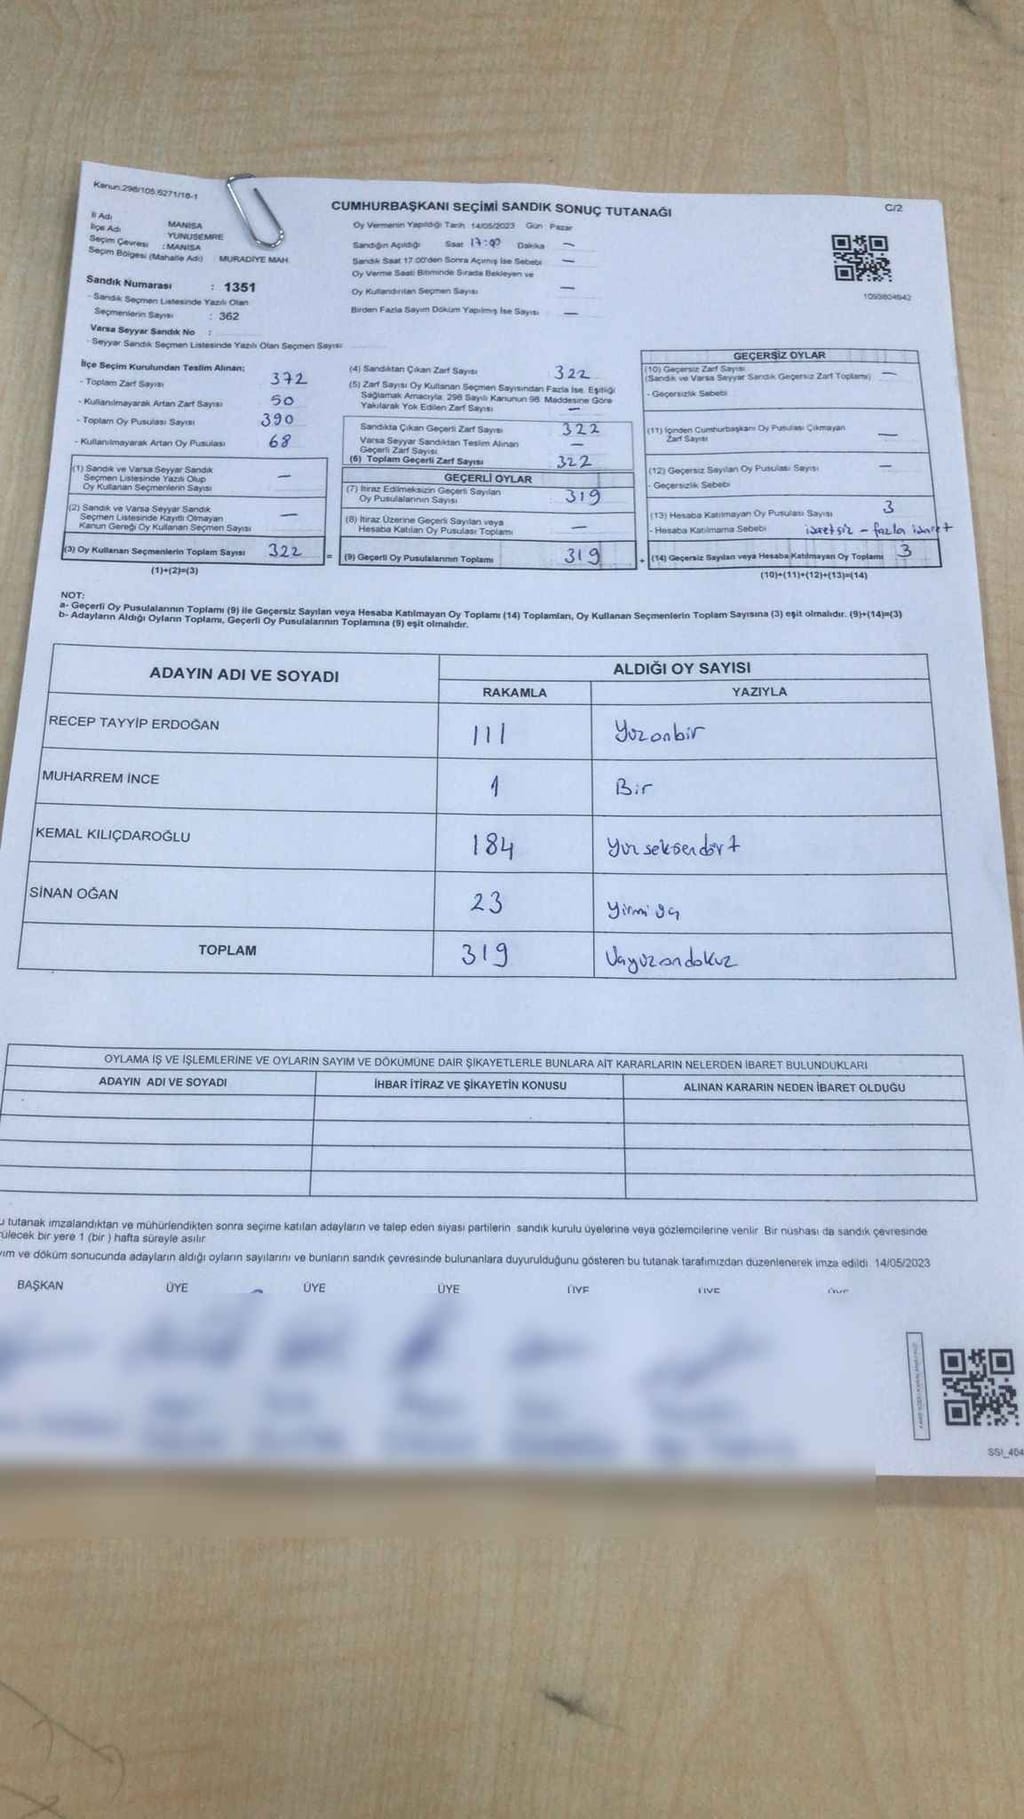 Kanun:298/105,6271/18-1
CUMHURBAŞKANI SEÇİMİ SANDIK SONUÇ TUTANAĞI
C/2
İl Adı MANİSA
İlçe Adı YUNUSEMRE
Seçim Çevresi :MANİSA
Seçim Bölgesi (Mahalle Adı) : MURADİYE MAH.
Oy Vermenin Yapıldığı Tarih 14/05/2023 Gün Pazar
Sandığın Açıldığı Saat 17:00 Dakika —
Sandık Saat 17:00'den Sonra Açılmış İse Sebebi —
Oy Verme Saati Bitiminde Sırada Bekleyen ve
Oy Kullandırılan Seçmen Sayısı —
Birden Fazla Sayım Döküm Yapılmış İse Sayısı —
Sandık Numarası : 1351
- Sandık Seçmen Listesinde Yazılı Olan
Seçmenlerin Sayısı : 362
Varsa Seyyar Sandık No :
- Seyyar Sandık Seçmen Listesinde Yazılı Olan Seçmen Sayısı:
İlçe Seçim Kurulundan Teslim Alınan:
- Toplam Zarf Sayısı 372
- Kullanılmayarak Artan Zarf Sayısı 50
- Toplam Oy Pusulası Sayısı 390
- Kullanılmayarak Artan Oy Pusulası 68
(1) Sandık ve Varsa Seyyar Sandık
Seçmen Listesinde Yazılı Olup
Oy Kullanan Seçmenlerin Sayısı —
(2) Sandık ve Varsa Seyyar Sandık
Seçmen Listesinde Kayıtlı Olmayan
Kanun Gereği Oy Kullanan Seçmen Sayısı —
(3) Oy Kullanan Seçmenlerin Toplam Sayısı 322
(1)+(2)=(3)
(4) Sandıktan Çıkan Zarf Sayısı 322
(5) Zarf Sayısı Oy Kullanan Seçmen Sayısından Fazla İse, Eşitliği
Sağlamak Amacıyla, 298 Sayılı Kanunun 98. Maddesine Göre
Yakılarak Yok Edilen Zarf Sayısı —
Sandıkta Çıkan Geçerli Zarf Sayısı 322
Varsa Seyyar Sandıktan Teslim Alınan
Geçerli Zarf Sayısı —
(6) Toplam Geçerli Zarf Sayısı 322
GEÇERLİ OYLAR
(7) İtiraz Edilmeksizin Geçerli Sayılan
Oy Pusulalarının Sayısı 319
(8) İtiraz Üzerine Geçerli Sayılan veya
Hesaba Katılan Oy Pusulası Toplamı —
= (9) Geçerli Oy Pusulalarının Toplamı 319
GEÇERSİZ OYLAR
(10) Geçersiz Zarf Sayısı
(Sandık ve Varsa Seyyar Sandık Geçersiz Zarf Toplamı) —
- Geçersizlik Sebebi
(11) İçinden Cumhurbaşkanı Oy Pusulası Çıkmayan
Zarf Sayısı —
(12) Geçersiz Sayılan Oy Pusulası Sayısı —
- Geçersizlik Sebebi
(13) Hesaba Katılmayan Oy Pusulası Sayısı 3
- Hesaba Katılmama Sebebi işaretsiz - fazla işaret
+ (14) Geçersiz Sayılan veya Hesaba Katılmayan Oy Toplamı 3
(10)+(11)+(12)+(13)=(14)
NOT:
a- Geçerli Oy Pusulalarının Toplamı (9) ile Geçersiz Sayılan veya Hesaba Katılmayan Oy Toplamı (14) Toplamları, Oy Kullanan Seçmenlerin Toplam Sayısına (3) eşit olmalıdır. (9)+(14)=(3)
b- Adayların Aldığı Oyların Toplamı, Geçerli Oy Pusulalarının Toplamına (9) eşit olmalıdır.
ADAYIN ADI VE SOYADI
ALDIĞI OY SAYISI
RAKAMLA YAZIYLA
RECEP TAYYİP ERDOĞAN 111 Yüzonbir
MUHARREM İNCE 1 Bir
KEMAL KILIÇDAROĞLU 184 Yüz seksendört
SİNAN OĞAN 23 Yirmi üç
TOPLAM 319 Üçyüzondokuz
OYLAMA İŞ VE İŞLEMLERİNE VE OYLARIN SAYIM VE DÖKÜMÜNE DAİR ŞİKAYETLERLE BUNLARA AİT KARARLARIN NELERDEN İBARET BULUNDUKLARI
ADAYIN ADI VE SOYADI İHBAR İTİRAZ VE ŞİKAYETİN KONUSU ALINAN KARARIN NEDEN İBARET OLDUĞU
u tutanak imzalandıktan ve mühürlendikten sonra seçime katılan adayların ve talep eden siyasi partilerin sandık kurulu üyelerine veya gözlemcilerine verilir. Bir nüshası da sandık çevresinde
ülecek bir yere 1 (bir ) hafta süreyle asılır.
yım ve döküm sonucunda adayların aldığı oyların sayılarını ve bunların sandık çevresinde bulunanlara duyurulduğunu gösteren bu tutanak tarafımızdan düzenlenerek imza edildi. 14/05/2023
BAŞKAN ÜYE ÜYE ÜYE ÜYE ÜYE ÜYE
SSI_404